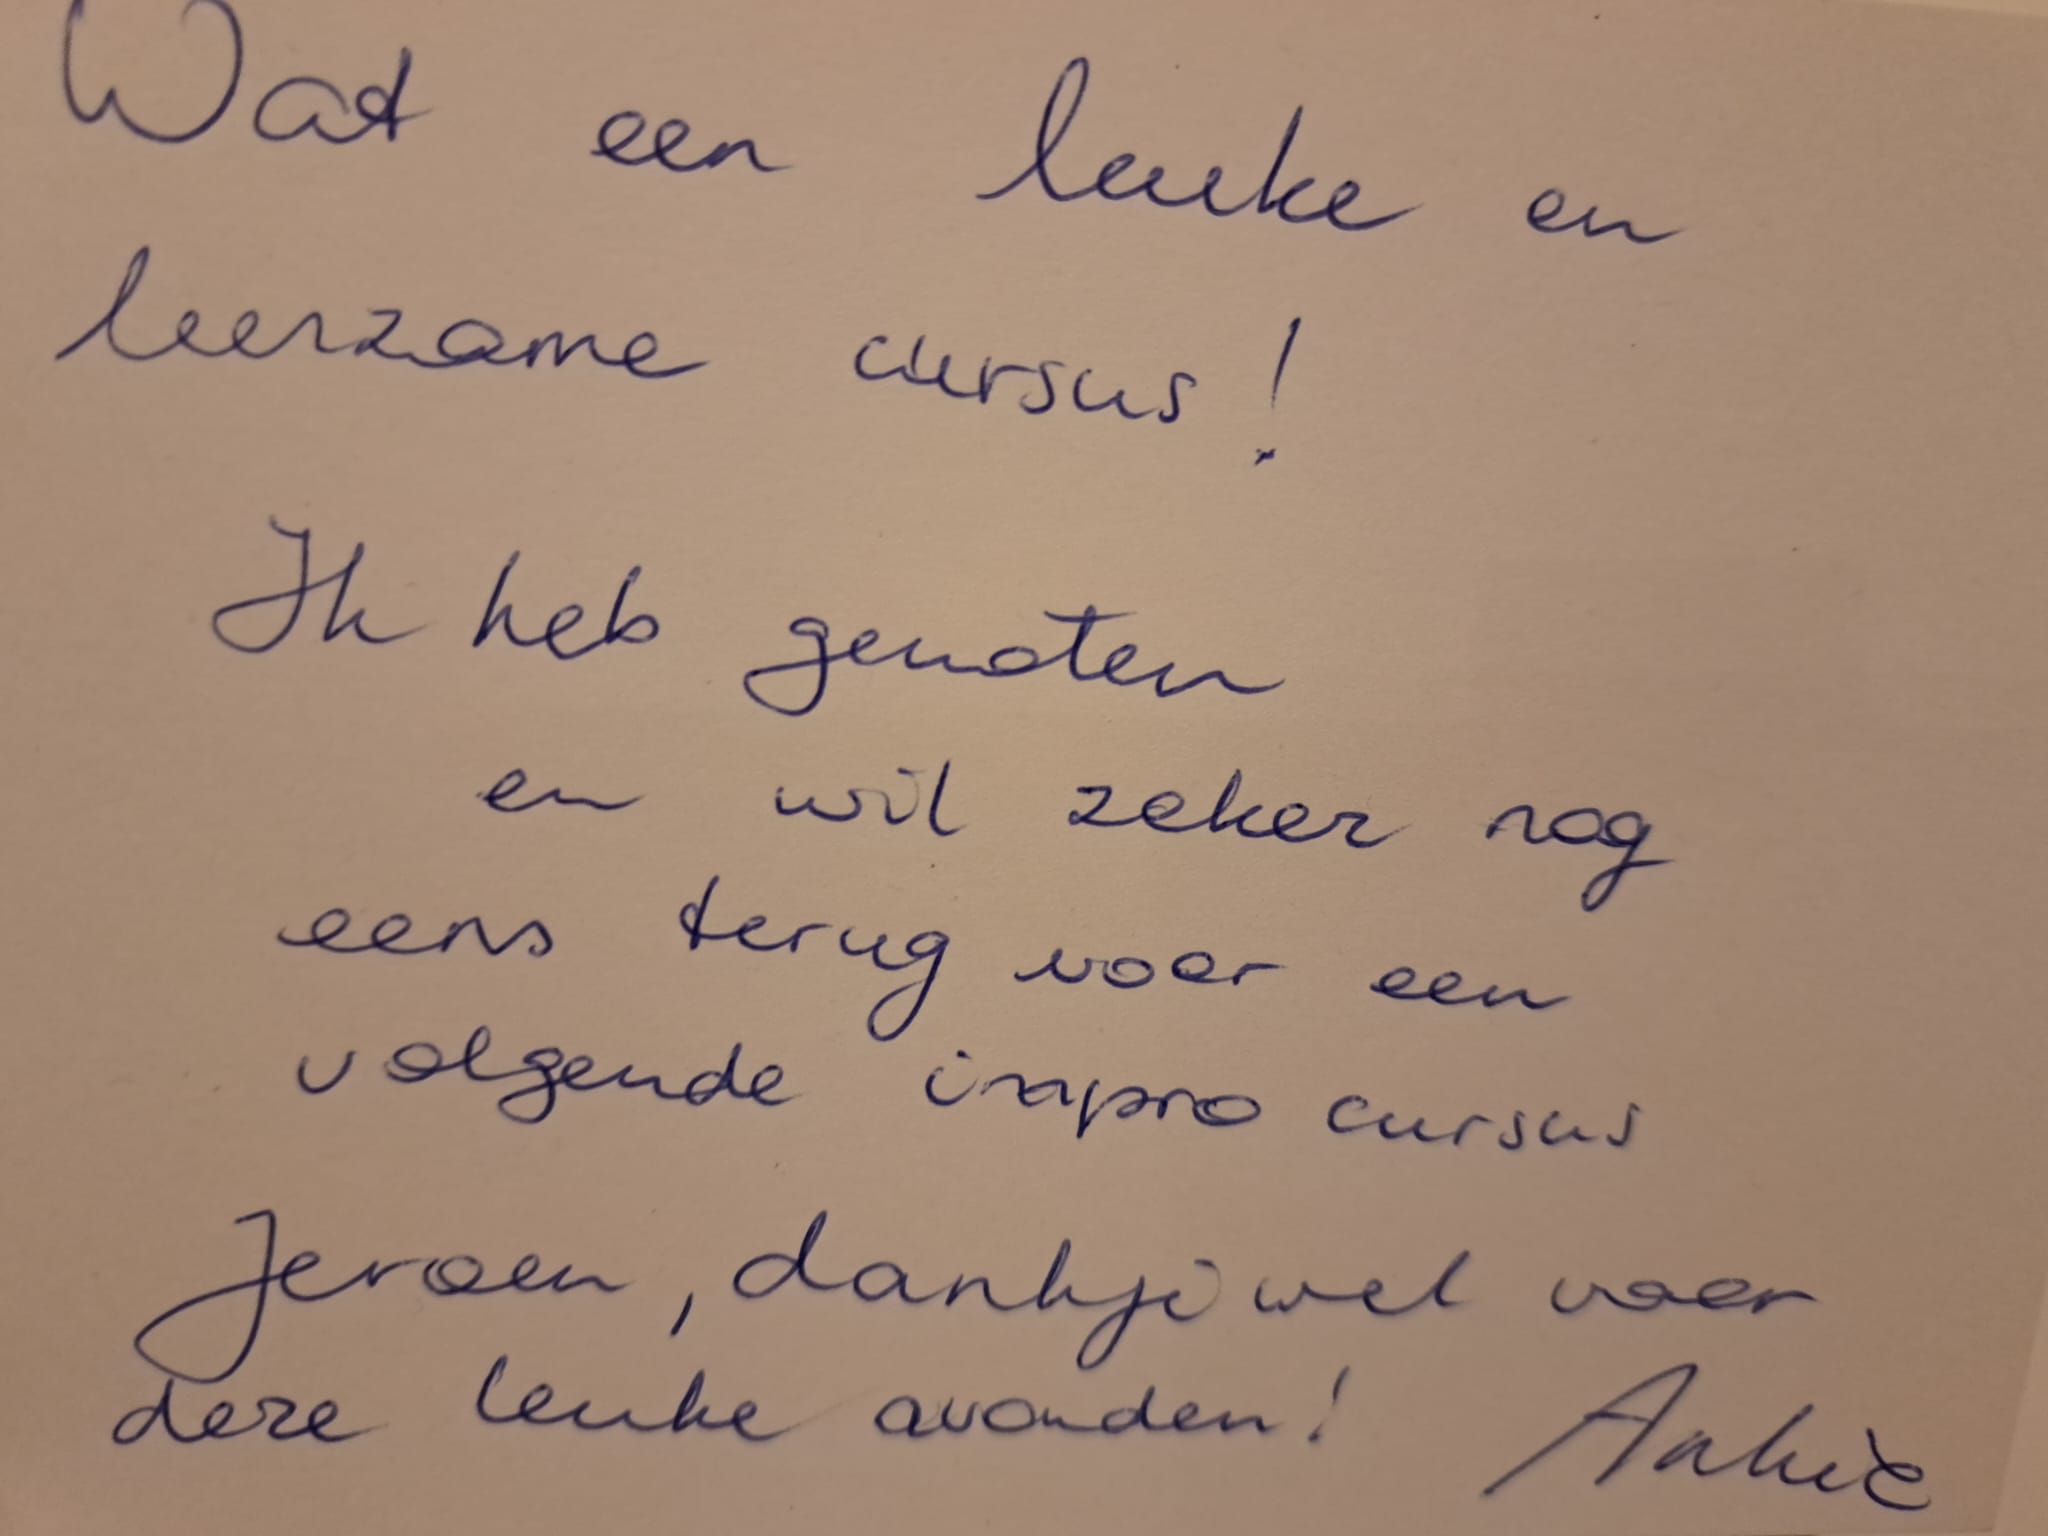 Wat een leuke en
leerzame cursus!
Ik heb genoten
en wil zeker nog
eens terug voor een
volgende impro cursus
Jeroen, dankjewel voor
deze leuke avonden! Ankie